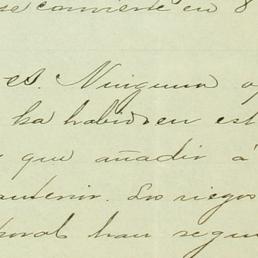 se convierte en 8
es. Ninguna op
ha habido en est
que añadir á
anterior. Los riegos
han segui